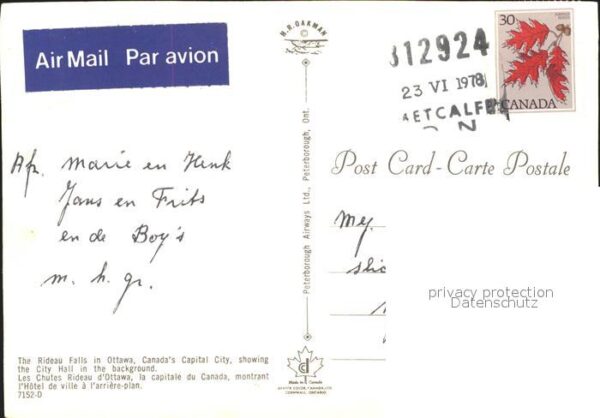 Air Mail Par avion
N.R. OAKMAN
312924
23 VI 1978
METCALFE
ON
30
CANADA
Post Card - Carte Postale
Afz. Marie en Henk
Jans en Frits
en de Boy's
m. h. gr.
Peterborough Airways Ltd., Peterborough, Ont.
privacy protection
Datenschutz
The Rideau Falls in Ottawa, Canada's Capital City, showing
the City Hall in the background.
Les Chutes Rideau d'Ottawa, la capitale du Canada, montrant
l'Hôtel de ville à l'arrière-plan.
7152-D
Made in Canada
CORNWALL, ONTARIO